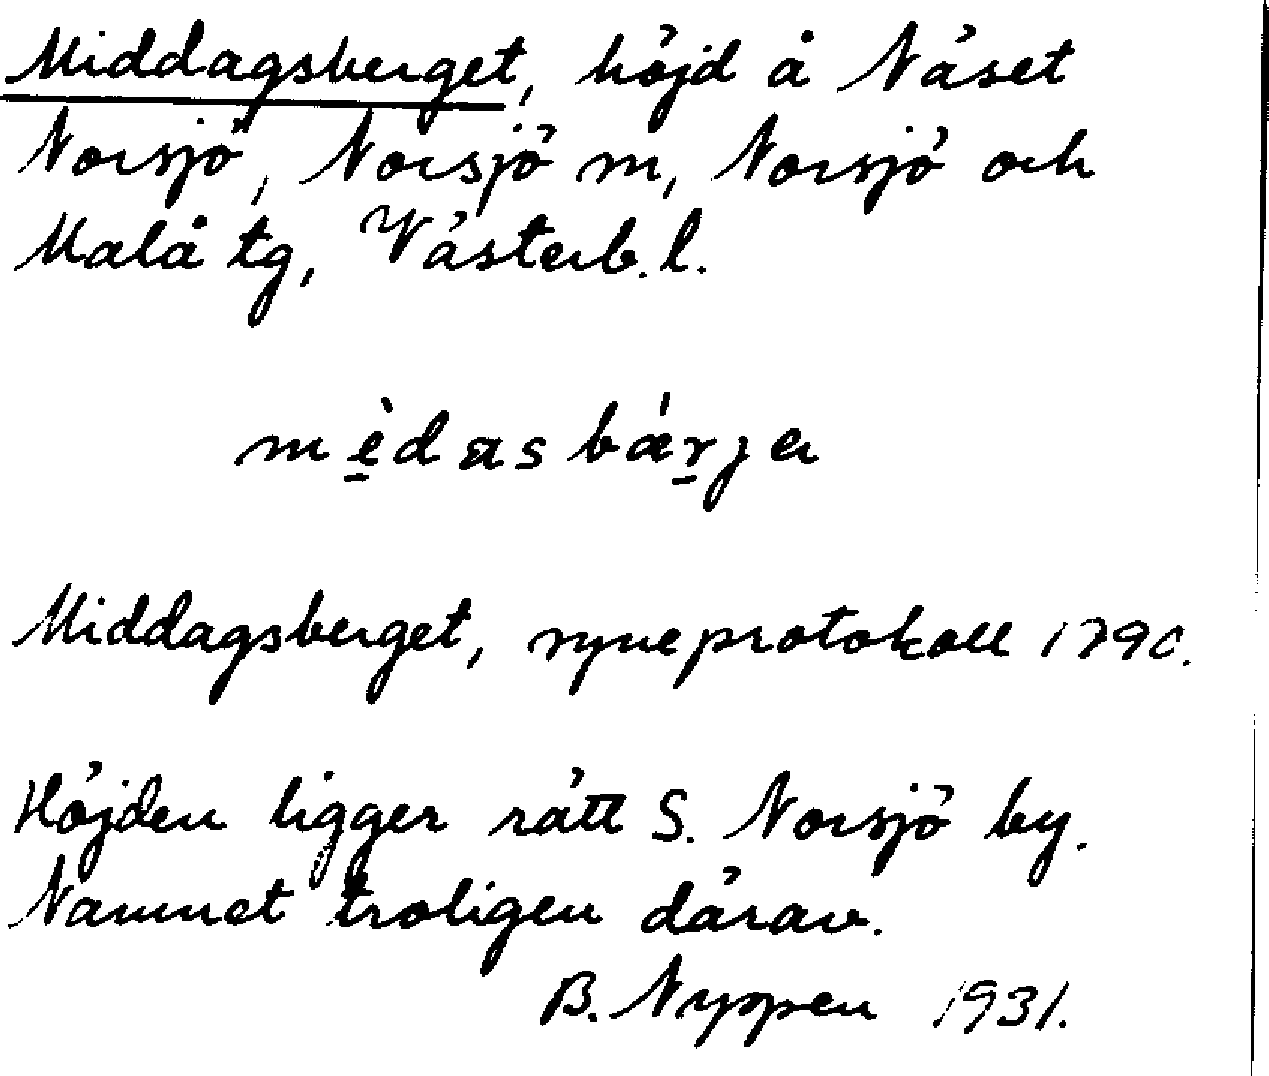 Middagsberget, höjd å Näset
Norsjö, Norsjö m, Norsjö och
Malå tg, Västerb. l.
mè̱dasbǽṟja
Middagsberget, syneprotokoll 1790.
Höjden ligger rätt S. Norsjö by.
Namnet troligen därav.
B. Nyppen 1931.